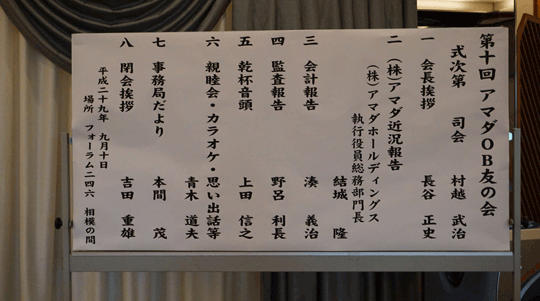 第十回 アマダOB友の会
式次第 司会 村越 武治
一 会長挨拶 長谷 正史
二 (株)アマダ近況報告
(株)アマダホールディングス
執行役員総務部門長
結城 隆
三 会計報告 湊 義治
四 監査報告 野呂 利長
五 乾杯音頭 上田 信之
六 親睦会・カラオケ・思い出話等
青木 道夫
七 事務局だより 本間 茂
八 閉会挨拶 吉田 重雄
平成二十九年 九月十日
場所 フォーラム二四六 相模の間